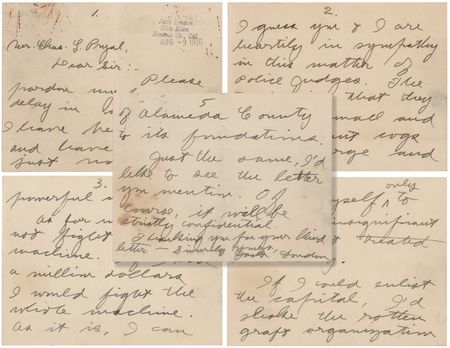 1.
Jack London
Glen Ellen
Sonoma Co., Cal.
AUG -9 1910
Mr. Chas. L.
Dear Sir:-
Please
pardon my
delay in
I have
and have
just
2.
I guess you & I are
heartily in sympathy
in this matter of
Police Judges. The
that they
small and
cogs
large and
3.
powerful
As for
not fight
machine.
a million dollars,
I would fight the
whole machine.
As it is, I can
only
myself to
insignificant
& treated
If I could enlist
the capital, I'd
shake the rotten
graft organization
5
of Alameda County
to its foundations.
Just the same, I'd
like to see the letter
you mention. Of
course, it will be
strictly confidential.
Thanking you for your kind
letter - Sincerely yours,
Jack London